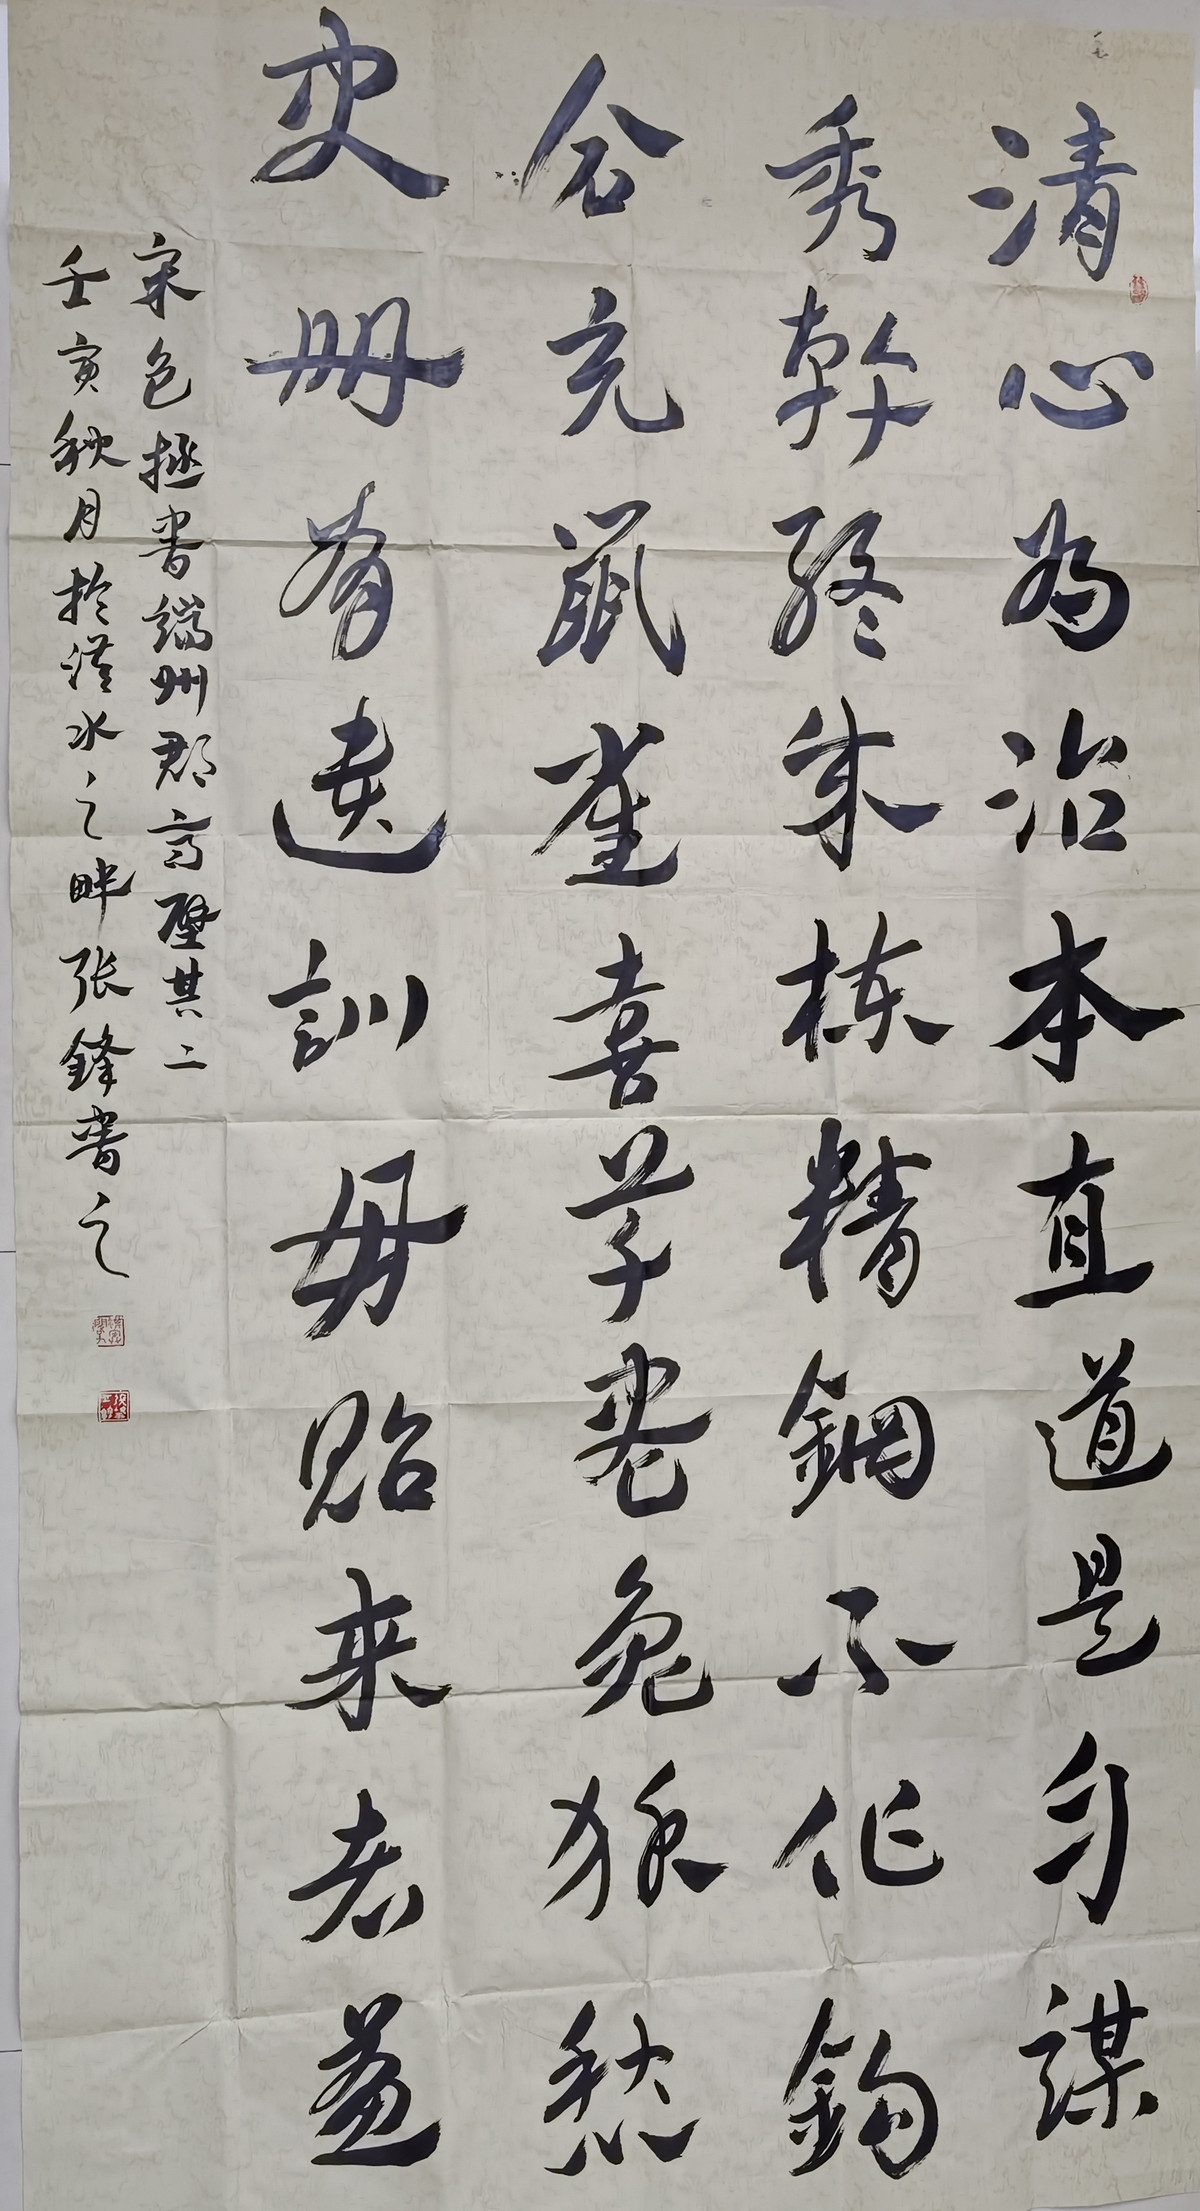 清心为治本直道是身謀
秀幹终成栋精鋼不作鈎
仓充鼠雀喜草尽兔狐愁
史册有遗訓毋贻来者羞
宋包拯書端州郡斋壁其二
壬寅秋月於漢水之畔张鋒書之